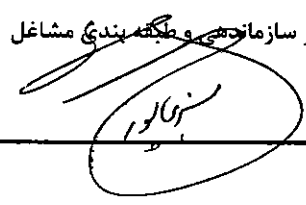 سازماندهی و طبقه بندی مشاغل